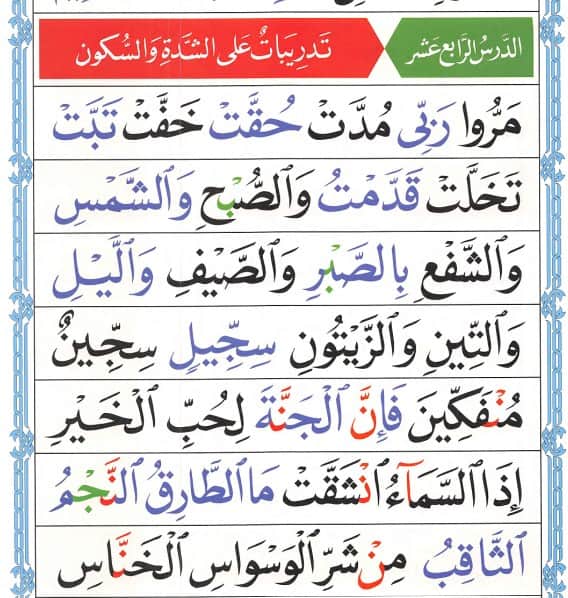 الدَّرسُ الرَّابِع عَشَر تَدرِيبَاتٌ عَلَى الشَّدَةِ وَالسُّكُون
مَرُّوا رَبِّي مُدَّتْ حُقَّتْ خَفَّتْ تَبَّتْ
تَخَلَّتْ قَدَّمْتُ وَٱلصُّبْحِ وَٱلشَّمْسِ
وَٱلشَّفْعِ بِٱلصَّبْرِ وَٱلصَّيْفِ وَٱلَّيْلِ
وَٱلتِّينِ وَٱلزَّيْتُونِ سِجِّيلٍ سِجِّينٌ
مُنْفَكِّينَ فَإِنَّ ٱلْجَنَّةَ لِحُبِّ ٱلْخَيْرِ
إِذَا ٱلسَّمَآءُ ٱنْشَقَّتْ مَا ٱلطَّارِقُ ٱلنَّجْمُ
ٱلثَّاقِبُ مِنْ شَرِّ ٱلْوَسْوَاسِ ٱلْخَنَّاسِ